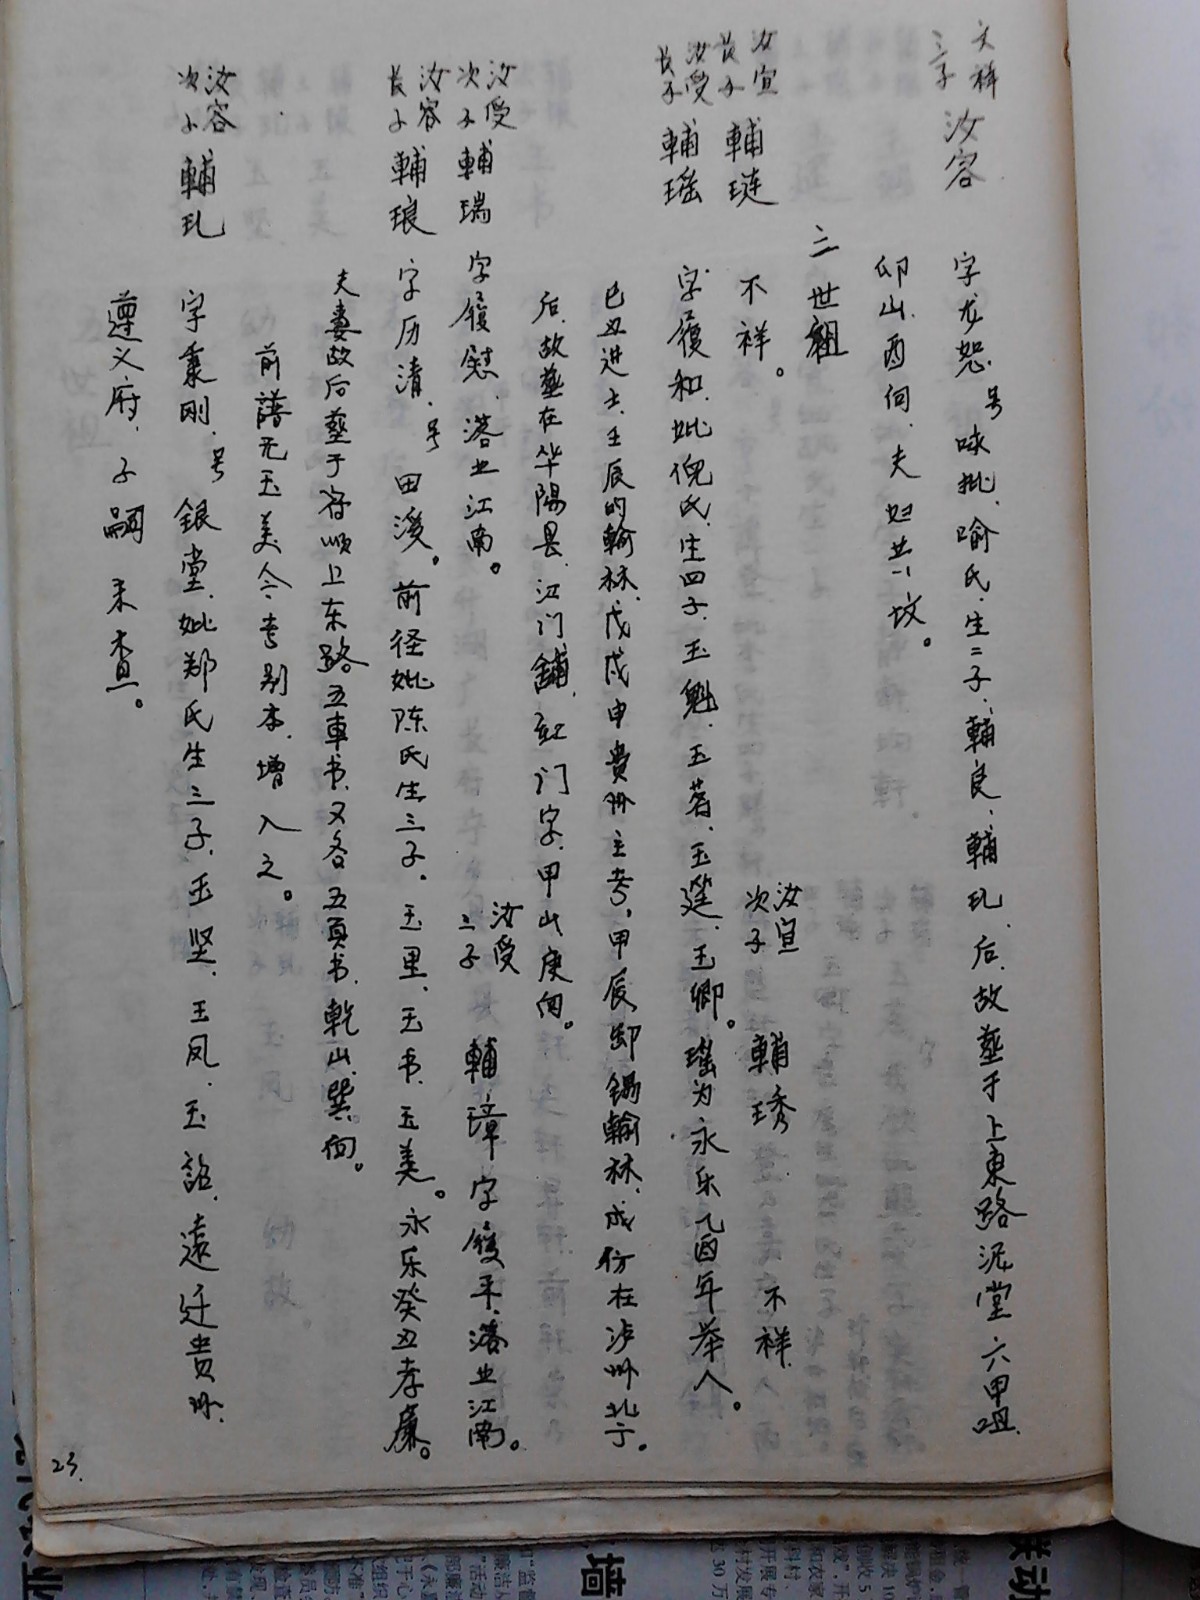 文祥三子 汝容 字尤恕 号咏批 喻氏 生二子 輔良 輔玑 后故塟于上東路泥堂六甲咀
卯山酉向 夫妇共坟。
三世祖
汝宣長子 輔琏 不祥。 汝宣次子 輔琇 不祥
汝受長子 輔瑶 字履和 妣倪氏 生四子 玉魁 玉著 玉莛 玉卿。瑶为永乐乙酉年举人。
己丑进士 壬辰的翰林 戊戌申貴州主考 甲辰卸锡翰林 成份在泸州北于。
后故塟在华陽县 江门舖 缸门字 甲山庚向。
汝受次子 輔瑞 字履慰 落业江南。 汝受三子 輔璋 字履平 落业江南。
汝容長子 輔琅 字历清 号田溪。前径妣陈氏生三子 玉里 玉书 玉美。永乐癸丑孝廉。
夫妻故后塟于富顺上东路五車书 又名五頁书 乾山巽向。
前譜无玉美 今考别本 增入之。
汝容次子 輔玑 字秉刚 号銀堂 妣郑氏生三子 玉坚 玉凤 玉詔 遠迁貴州
遵义府 子嗣未查。
23.
墙
联动